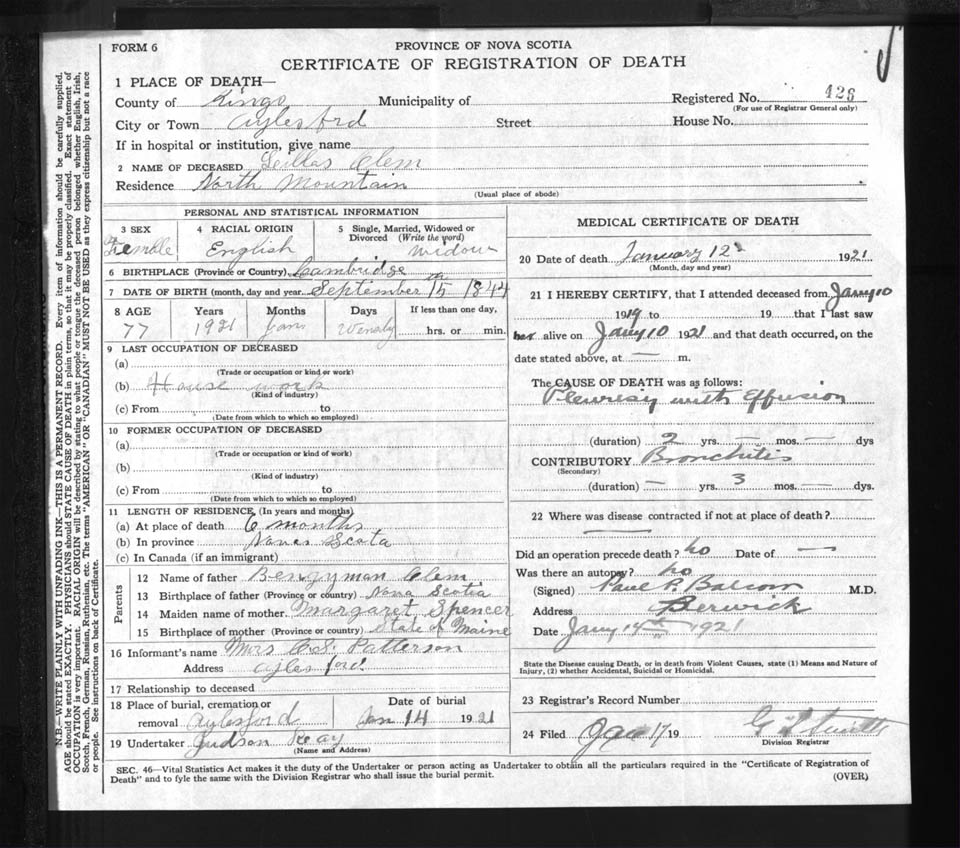 FORM 6
PROVINCE OF NOVA SCOTIA
CERTIFICATE OF REGISTRATION OF DEATH
1 PLACE OF DEATH—
County of Kings Municipality of Registered No. 426
(For use of Registrar General only)
City or Town Aylesford Street House No.
If in hospital or institution, give name
2 NAME OF DECEASED Clem
Residence North Mountain
(Usual place of abode)
PERSONAL AND STATISTICAL INFORMATION
3 SEX 4 RACIAL ORIGIN 5 Single, Married, Widowed or Divorced (Write the word)
Female English Widow
6 BIRTHPLACE (Province or Country) Cambridge
7 DATE OF BIRTH (month, day and year September 15 1844
8 AGE Years Months Days If less than one day,
77 1921 hrs. or min.
9 LAST OCCUPATION OF DECEASED
(a)
(Trade or occupation or kind or work)
(b) House work
(Kind of industry)
(c) From to
(Date from which to which so employed)
10 FORMER OCCUPATION OF DECEASED
(a)
(Trade or occupation or kind of work)
(b)
(Kind of industry)
(c) From to
(Date from which to which so employed)
11 LENGTH OF RESIDENCE (In years and months)
(a) At place of death 6 months
(b) In province Nova Scota
(c) In Canada (if an immigrant)
Parents
12 Name of father Bengyman Clem
13 Birthplace of father (Province or country) Nova Scotia
14 Maiden name of mother Margaret Spencer
15 Birthplace of mother (Province or country) State of Maine
16 Informant's name Mrs Patterson
Address Aylesford
17 Relationship to deceased
18 Place of burial, cremation or removal Aylesford
Date of burial Jan 14 1921
19 Undertaker Judson Ray
(Name and Address)
MEDICAL CERTIFICATE OF DEATH
20 Date of death January 12 1921
(Month, day and year)
21 I HEREBY CERTIFY, that I attended deceased from Jany 10
1919 to 19 that I last saw
her alive on Jany 10 1921 and that death occurred, on the
date stated above, at — m.
The CAUSE OF DEATH was as follows:
Pleurisy with Effusion
(duration) 2 yrs. — mos. — dys
CONTRIBUTORY Bronchitis
(Secondary)
(duration) — yrs. 3 mos. — dys.
22 Where was disease contracted if not at place of death?
Did an operation precede death? no Date of —
Was there an autopsy? no
(Signed) Paul P. Balcom M.D.
Address Berwick
Date Jany 14th 1921
State the Disease causing Death, or in death from Violent Causes, state (1) Means and Nature of
Injury, (2) whether Accidental, Suicidal or Homicidal.
23 Registrar's Record Number
24 Filed Jan 17 19
Division Registrar
SEC. 46—Vital Statistics Act makes it the duty of the Undertaker or person acting as Undertaker to obtain all the particulars required in the "Certificate of Registration of
Death" and to fyle the same with the Division Registrar who shall issue the burial permit.
(OVER)
N.B.—WRITE PLAINLY WITH UNFADING INK—THIS IS A PERMANENT RECORD. Every item of information should be carefully supplied.
AGE should be stated EXACTLY. PHYSICIANS should STATE CAUSE OF DEATH in plain terms, so that it may be properly classified. Exact statement of
OCCUPATION is very important. RACIAL ORIGIN will be described by stating to what people or tongue the deceased person belonged whether English, Irish,
Scotch, French, German, Russian, Ruthenian, etc. The terms "AMERICAN" OR "CANADIAN" MUST NOT BE USED as they express citizenship but not a race
or people. See instructions on back of Certificate.